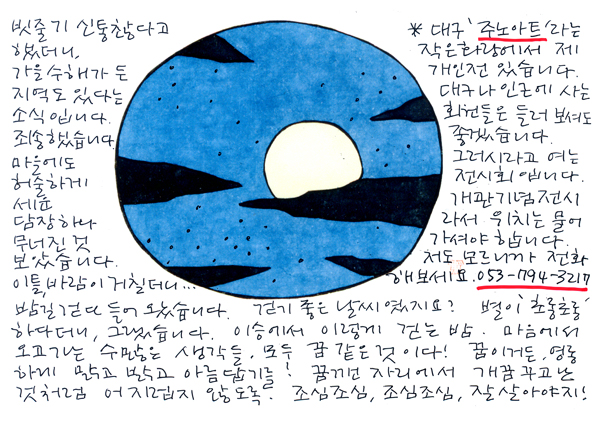 빗줄기 신통찮다고
했더니,
가을 수해가 든
지역도 있다는
소식입니다.
죄송했습니다.
마을에도
허술하게
세운
담장하나
무너진 것
보았습니다.
이틀, 바람이 거칠더니...
* 대구 '주노아트'라는
작은화랑에서 제
개인전 있습니다.
대구나 인근에 사는
회원들은 들러 보셔도
좋겠습니다.
그러시라고 여는
전시회입니다.
개관기념전시
라서 위치는 물어
가셔야 합니다.
저도 모르니까 전화
해보세요. 053-794-3217
밤길 걷다 들어 왔습니다. 걷기 좋은 날씨였지요? 별이 '초롱초롱'
하다더니, 그랬습니다. 이승에서 이렇게 걷는 밤. 마음에서
오고가는 수많은 생각들, 모두 꿈 같은 것이다! 꿈이거든, 영롱
하게 맑고 밝고 아름답기를! 꿈깨인 자리에서 개꿈꾸고난
것처럼 어지럽지 않도록. 조심조심, 조심조심, 잘 살아야지!